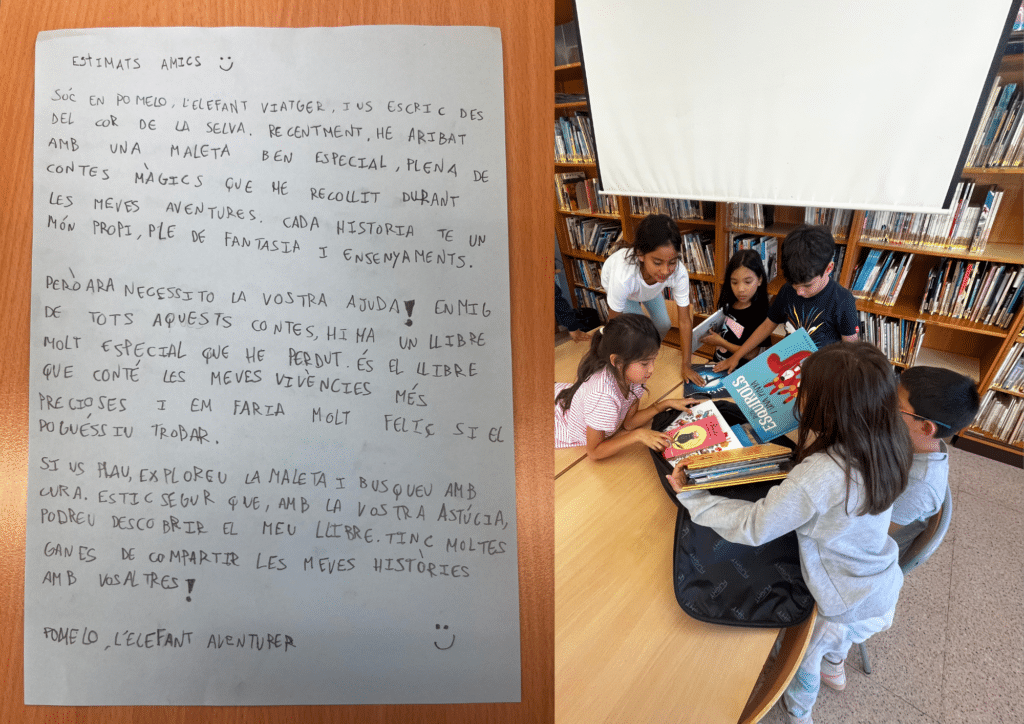 ESTIMATS AMICS
SÓC EN POMELO, L'ELEFANT VIATGER, I US ESCRIC DES
DEL COR DE LA SELVA. RECENTMENT, HE ARIBAT
AMB UNA MALETA BEN ESPECIAL, PLENA DE
CONTES MÀGICS QUE HE RECOLLIT DURANT
LES MEVES AVENTURES. CADA HISTORIA TE UN
MÓN PROPI, PLE DE FANTASIA I ENSENYAMENTS.
PERÒ ARA NECESSITO LA VOSTRA AJUDA! EN MIG
DE TOTS AQUESTS CONTES, HI HA UN LLIBRE
MOLT ESPECIAL QUE HE PERDUT. ÉS EL LLIBRE
QUE CONTÉ LES MEVES VIVÈNCIES MÉS
PRECIOSES I EM FARIA MOLT FELIÇ SI EL
POGUÉSSIU TROBAR.
SI US PLAU, EXPLOREU LA MALETA I BUSQUEU AMB
CURA. ESTIC SEGUR QUE, AMB LA VOSTRA ASTÚCIA,
PODREU DESCOBRIR EL MEU LLIBRE. TINC MOLTES
GANES DE COMPARTIR LES MEVES HISTÒRIES
AMB VOSALTRES!
POMELO, L'ELEFANT AVENTURER
ESQUIROLS